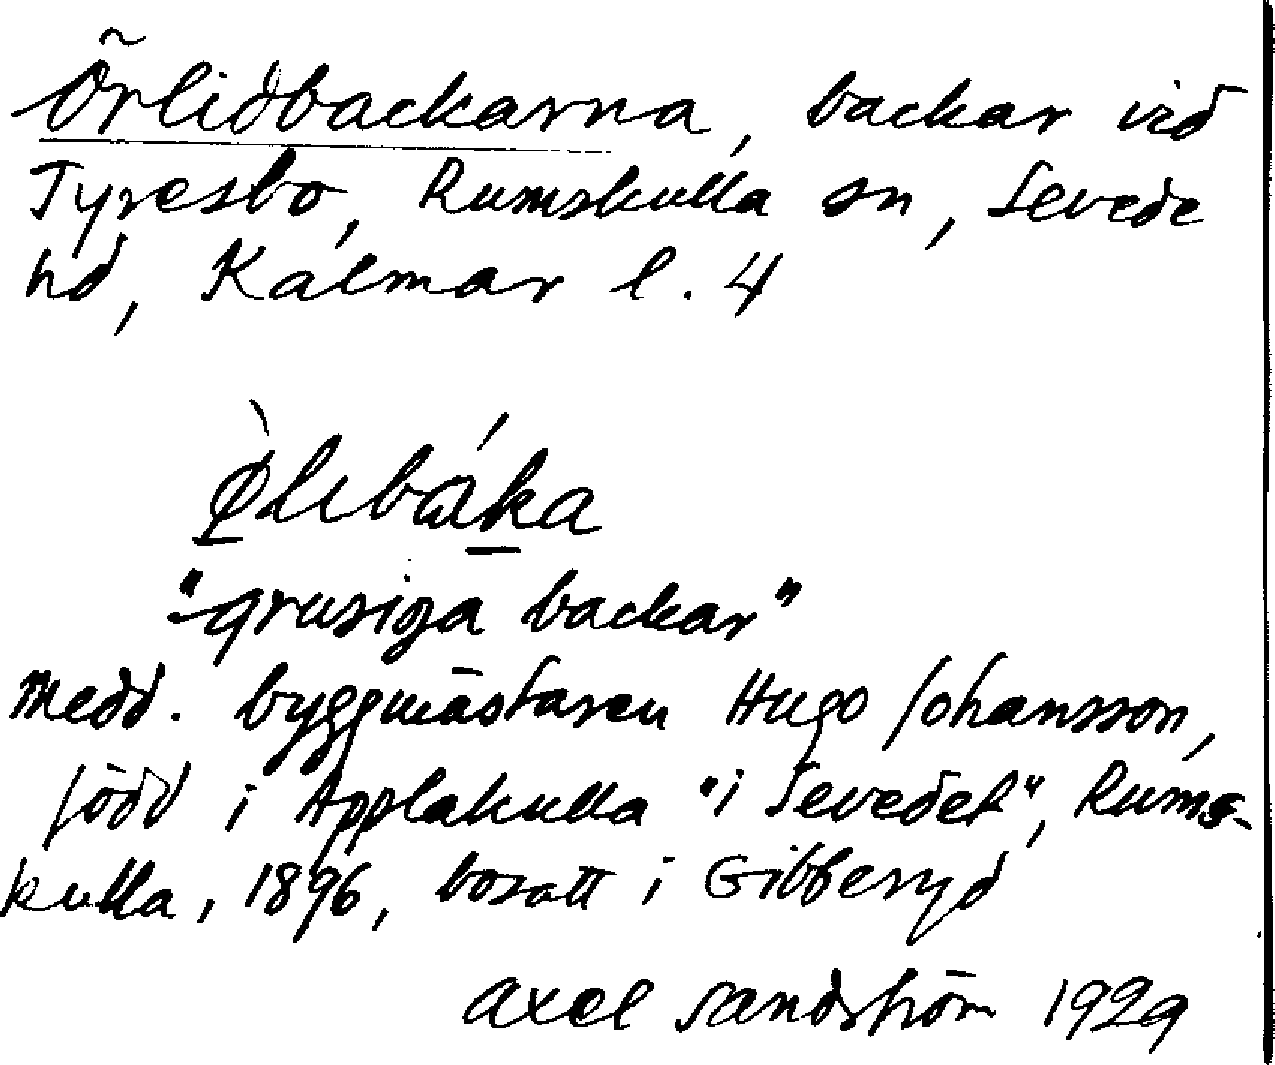 Örlidbackarna, backar vid
Tyresbo, Rumskulla sn, Sevede
hd, Kalmar l. 4
"grusiga backar"
Medd. byggmästaren Hugo Johansson,
född i Applakulla "i Sevedet", Rums-
kulla, 1896, bosatt i Gibberyd
Axel Sandström 1929